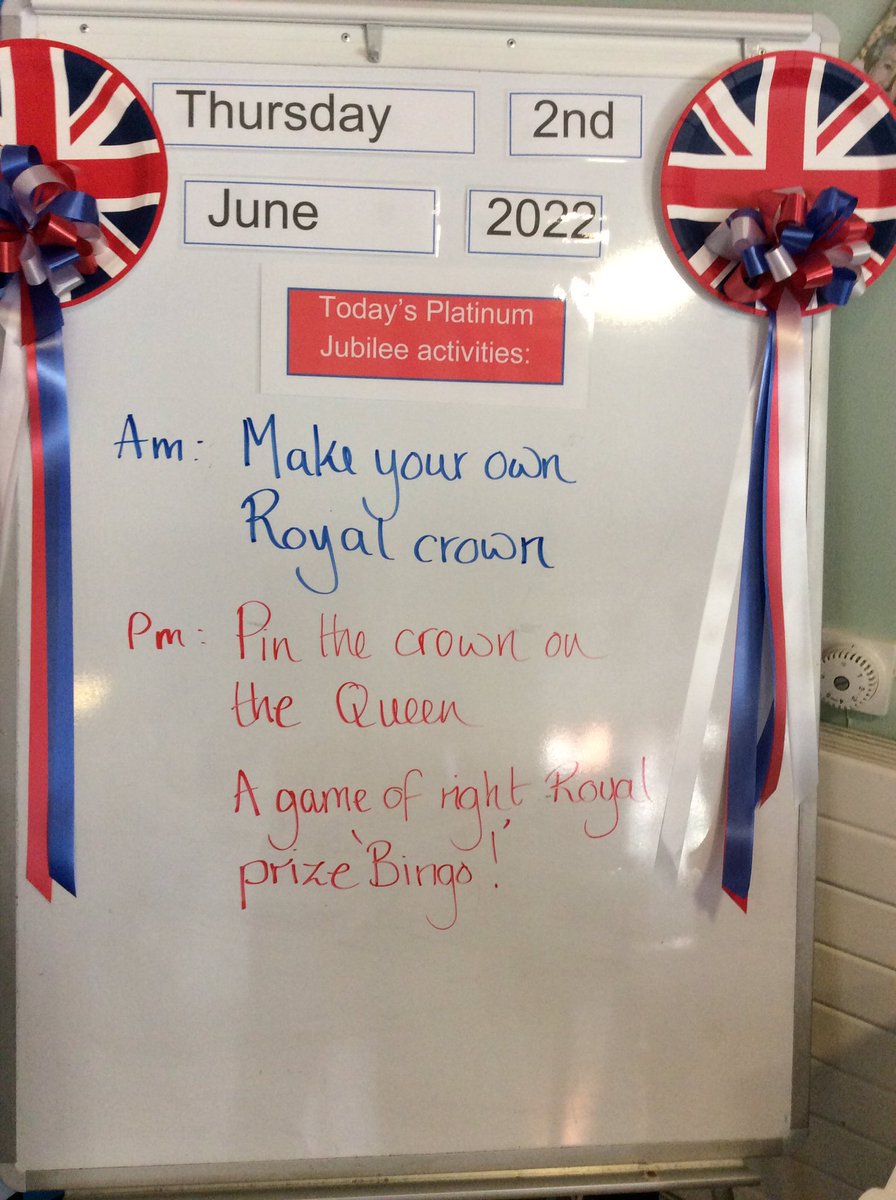 Thursday 2nd
June 2022
Today's Platinum
Jubilee activities:
Am: Make your own
Royal crown
Pm: Pin the crown on
the Queen
A game of right Royal
prize 'Bingo!'